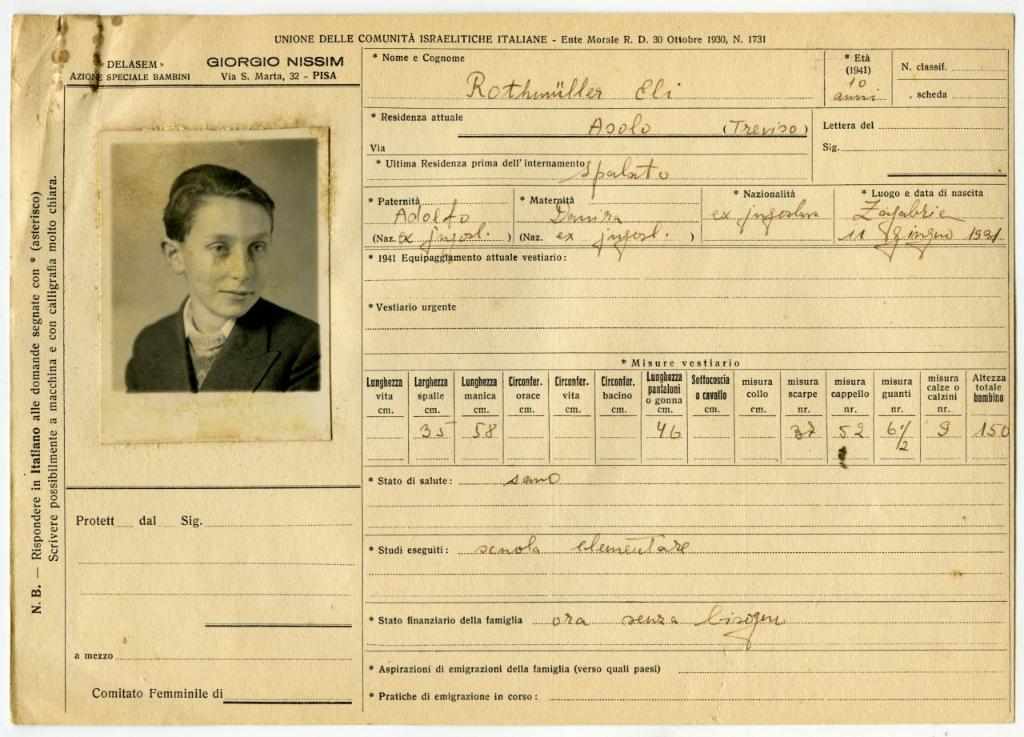 UNIONE DELLE COMUNITÀ ISRAELITICHE ITALIANE - Ente Morale R. D. 30 Ottobre 1930, N. 1731
« DELASEM »
AZIONE SPECIALE BAMBINI
GIORGIO NISSIM
Via S. Marta, 32 - PISA
N. B. — Rispondere in Italiano alle domande segnate con * (asterisco)
Scrivere possibilmente a macchina e con calligrafia molto chiara.
* Nome e Cognome
Rothmüller Eli
* Età
(1941)
10
anni
N. classif.
. scheda
* Residenza attuale
Asolo (Treviso)
Via
Lettera del
Sig.
* Ultima Residenza prima dell'internamento Spalato
* Paternità
Adolfo
(Naz. ex jugosl. )
* Maternità
(Naz. ex jugosl. )
* Nazionalità
ex jugoslava
* Luogo e data di nascita
Zagabria
11 giugno 1931
* 1941 Equipaggiamento attuale vestiario:
* Vestiario urgente
* Misure vestiario
Lunghezza vita cm.
Larghezza spalle cm. 35
Lunghezza manica cm. 58
Circonfer. orace cm.
Circonfer. vita cm.
Circonfer. bacino cm.
Lunghezza pantaloni o gonna cm. 46
Sottocoscia o cavallo cm.
misura collo cm.
misura scarpe nr. 37
misura cappello nr. 52
misura guanti nr. 6 1/2
misura calze o calzini nr. 9
Altezza totale bambino 150
* Stato di salute: sano
* Studi eseguiti: scuola elementare
* Stato finanziario della famiglia ora senza bisogni
* Aspirazioni di emigrazioni della famiglia (verso quali paesi)
* Pratiche di emigrazione in corso:
Protett dal Sig.
a mezzo
Comitato Femminile di